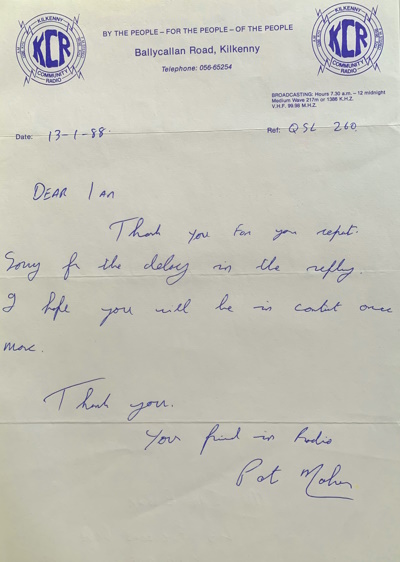 KILKENNY
KCR
COMMUNITY
RADIO
KILKENNY
KCR
COMMUNITY
RADIO
BY THE PEOPLE – FOR THE PEOPLE – OF THE PEOPLE
Ballycallan Road, Kilkenny
Telephone: 056-65254
BROADCASTING: Hours 7.30 a.m. – 12 midnight
Medium Wave 217m or 1386 K.H.Z.
V.H.F. 99.98 M.H.Z.
Date: 13-1-88.
Ref: QSL 260.
DEAR IAN
Thank you for you report.
Sorry for the delay in the reply.
I hope you will be in contact once
more.
Thank you.
Your friend in Radio
Pat Maher